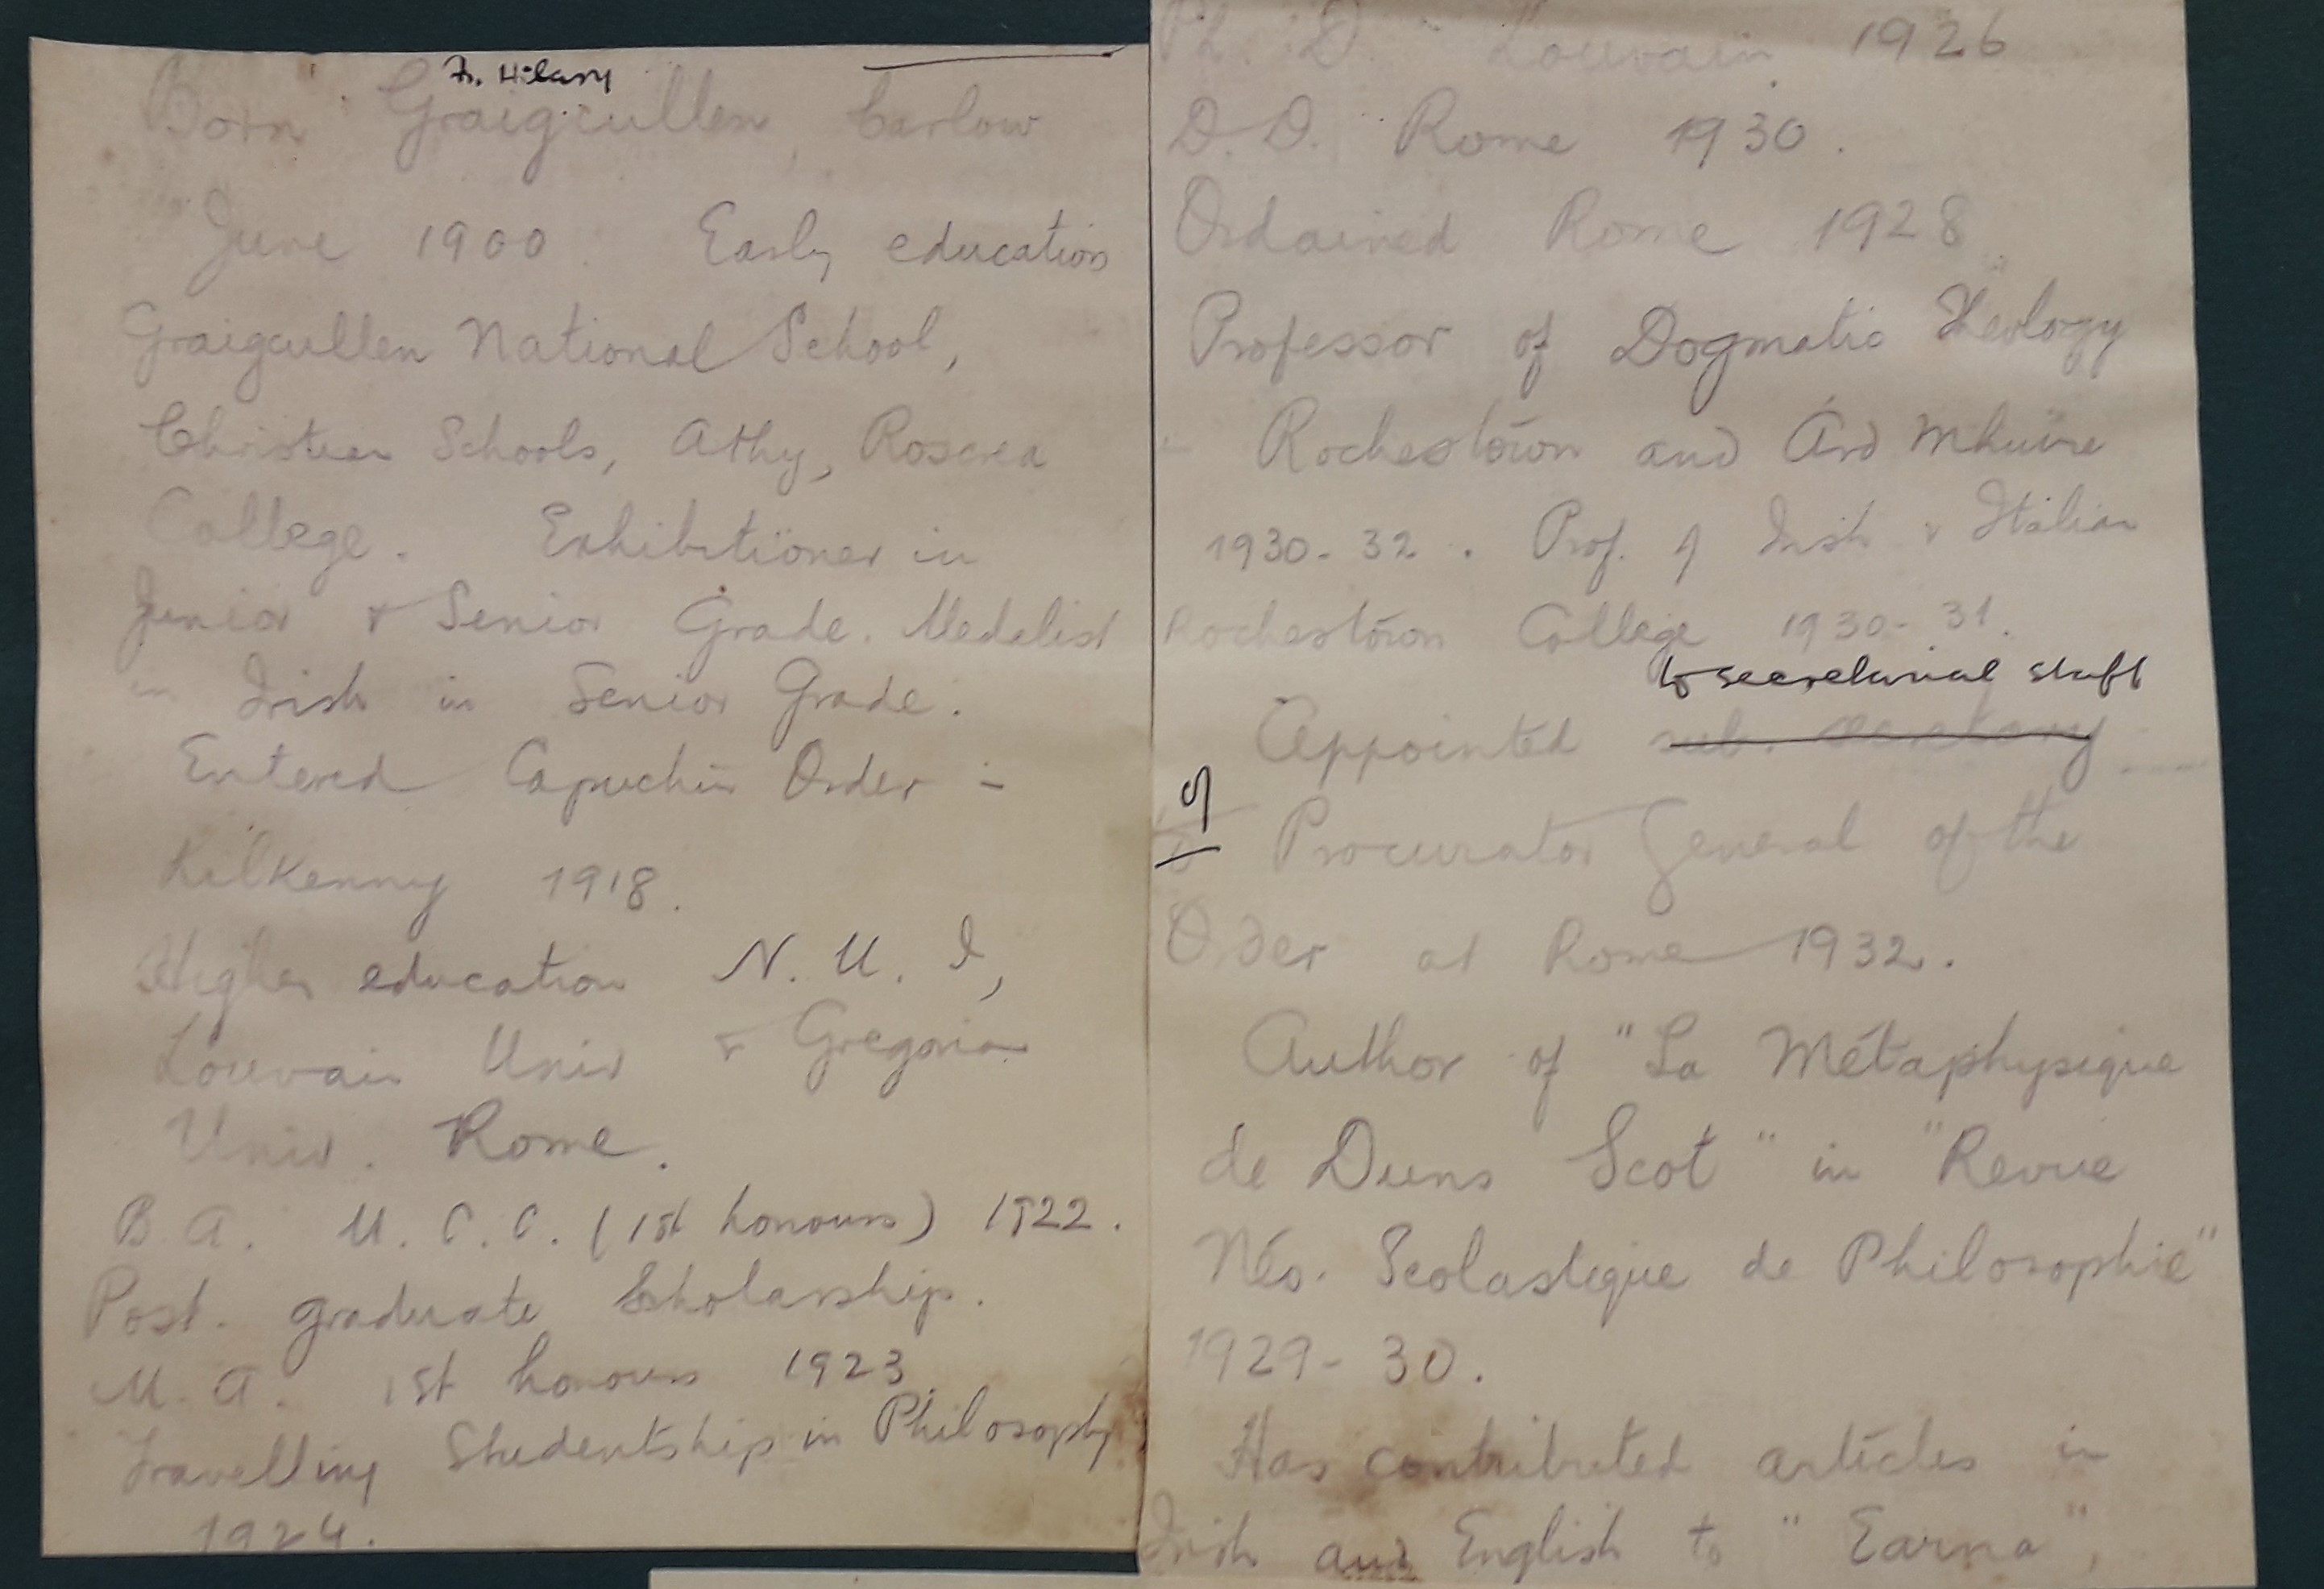 Fr. Hilary
Born Graigcullen, Carlow
June 1900. Early education
Graigcullen National School,
Christian Schools, Athy, Roscrea
College. Exhibitioner in
Junior & Senior Grade. Medalist
in Irish in Senior Grade.
Entered Capuchin Order -
Kilkenny 1918.
Higher education N. U. I,
Louvain Univ & Gregorian
Univ. Rome.
B. A. U. C. C. (1st honours) 1922.
Post. graduate Scholarship.
M. A. 1st honours 1923
Travelling Studentship in Philosophy
1924.
Ph. D. Louvain 1926
D. D. Rome 1930.
Ordained Rome 1928
Professor of Dogmatic Theology
- Rochestown and Árd Mhuire
1930-32. Prof. of Irish & Italian
Rochestown College 1930-31.
to secretarial staff
Appointed sub. secretary
of Procurator General of the
Order at Rome 1932.
Author of "La Métaphysique
de Duns Scot" in "Revue
Néo. Scolastique de Philosophie"
1929-30.
Has contributed articles in
Irish and English to "Earna",